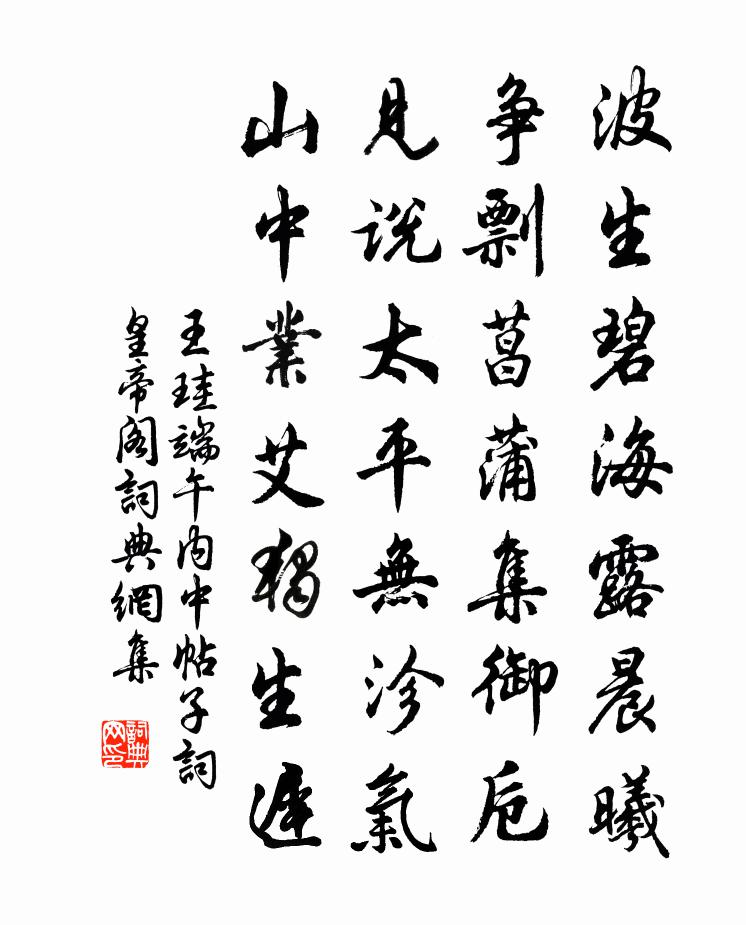 波生碧海露晨曦
争剽菖蒲集御卮
見説太平無沴氣
山中業艾獨生遲
王珪端午内中帖子詞
皇帝閣詞典網集
詞典網印